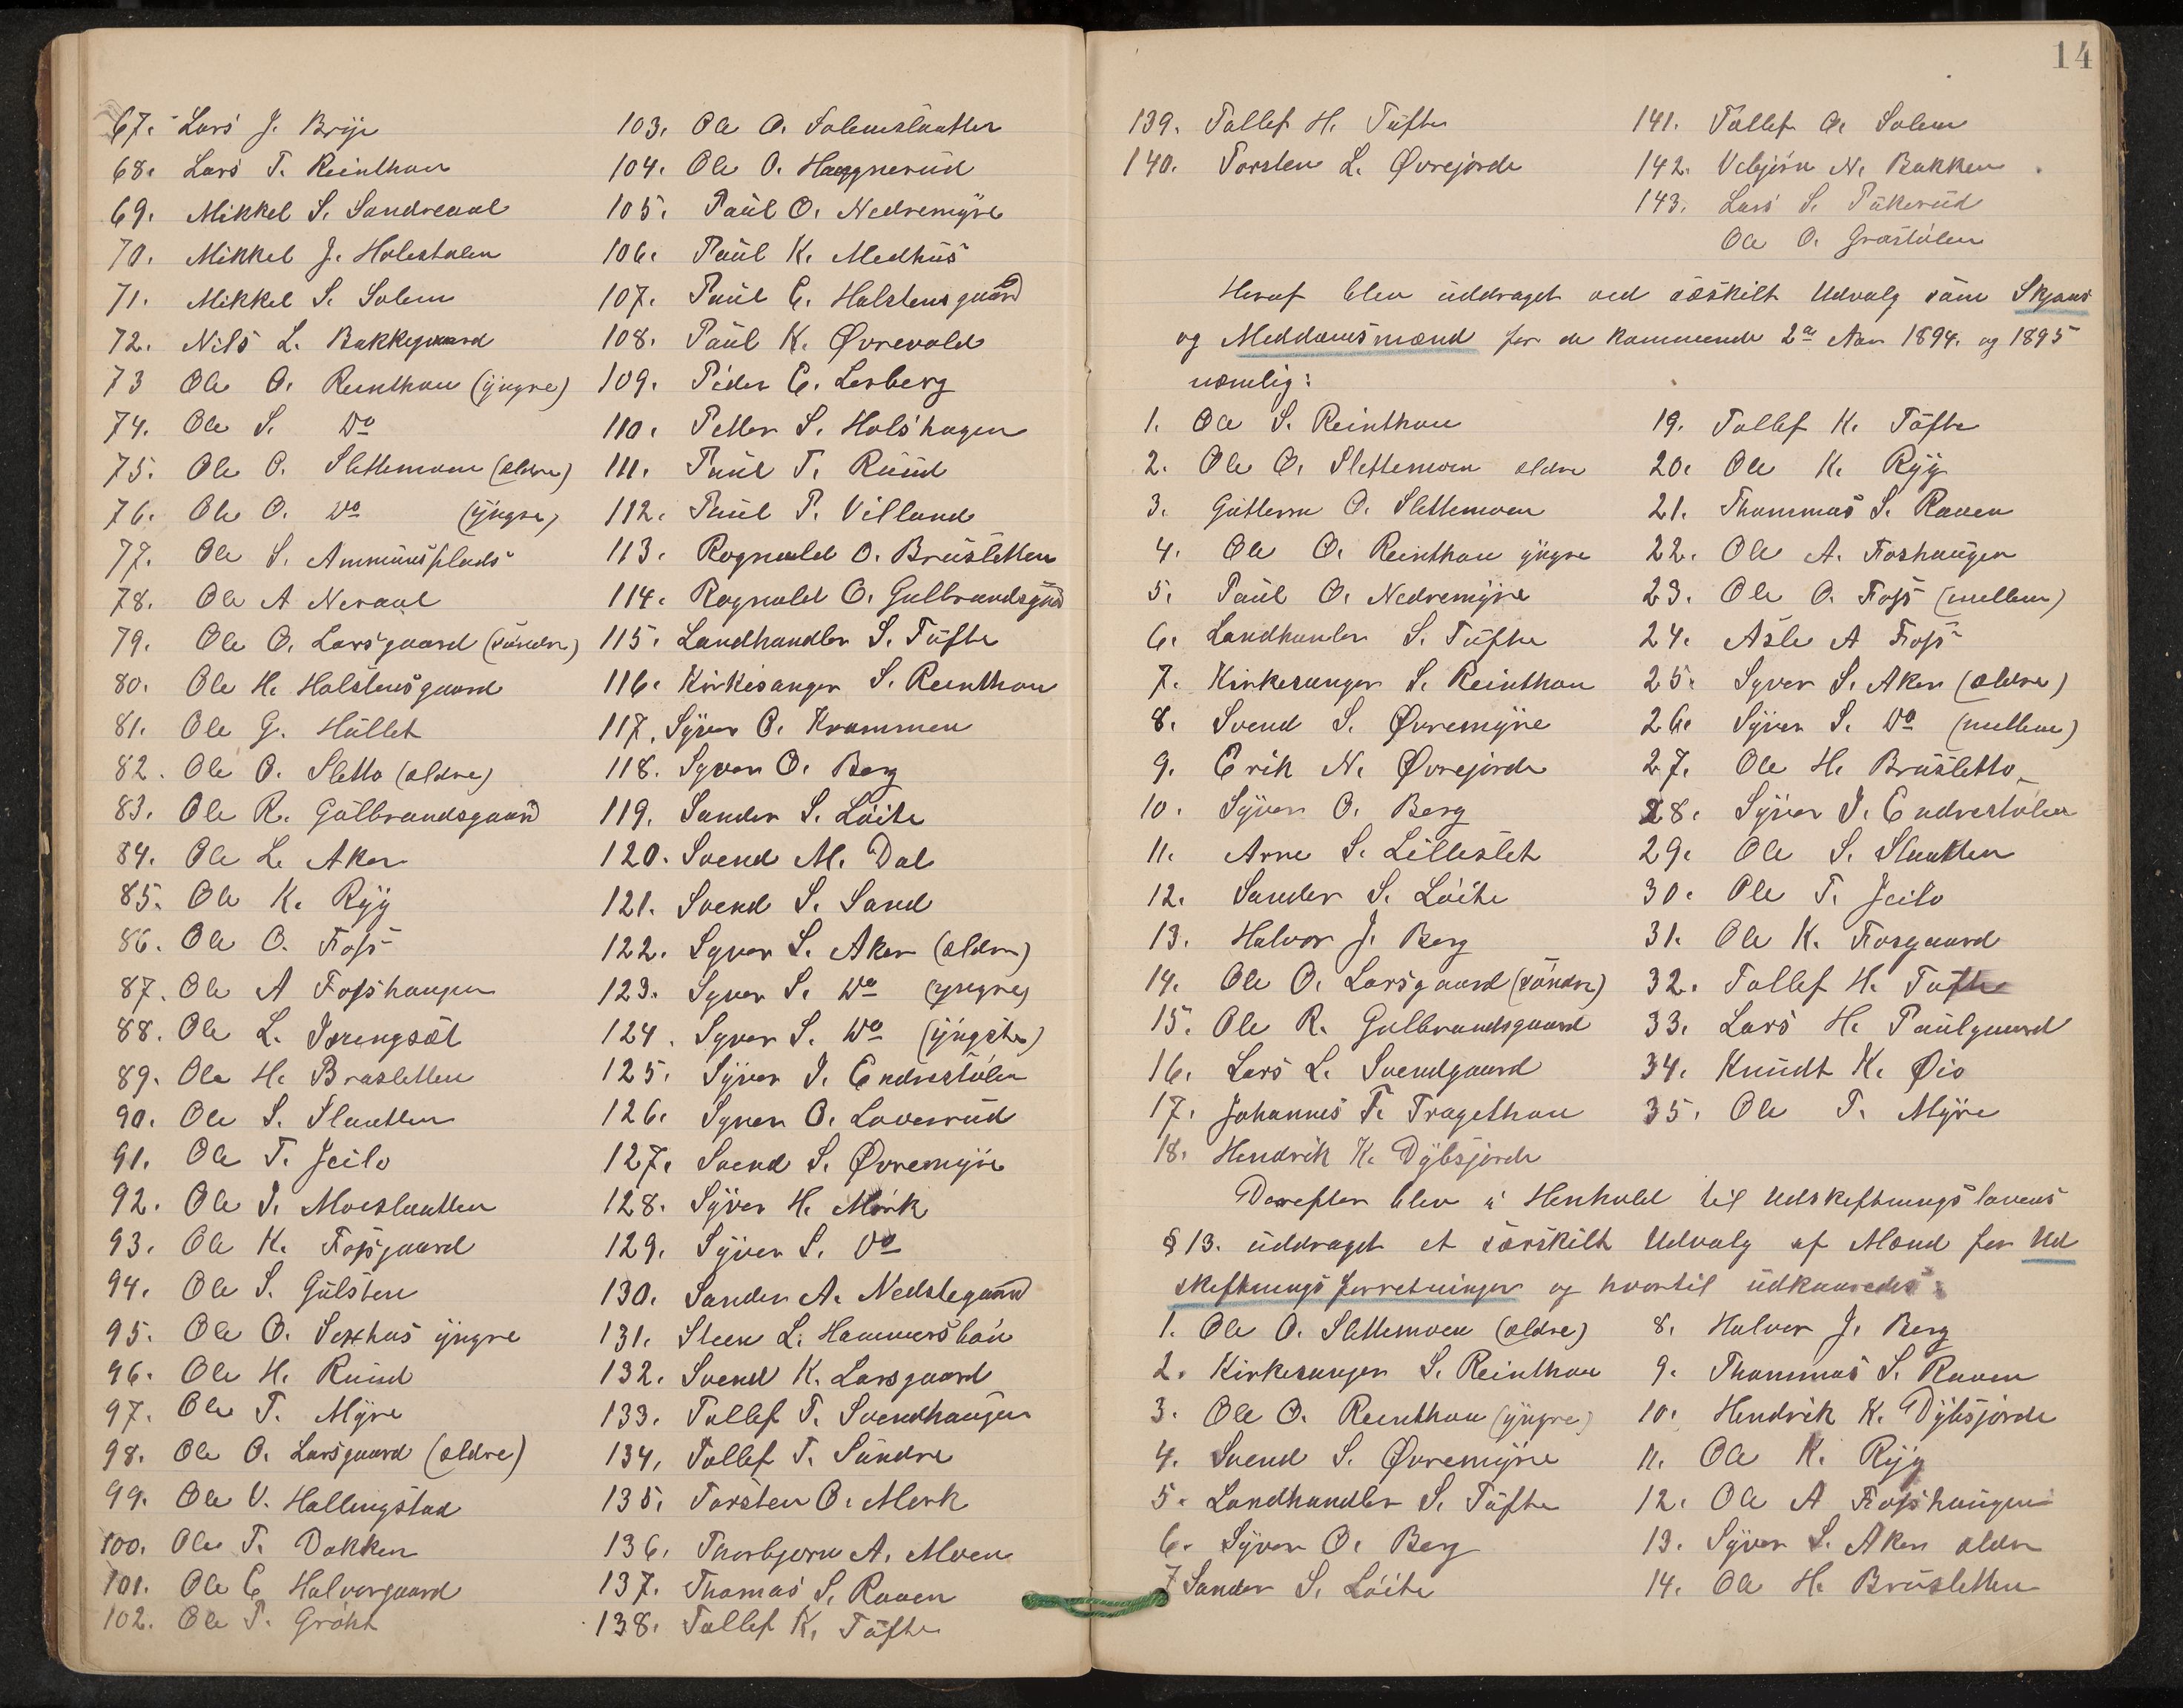 67. Lars J. Brye
68. Lars T. Reinthon
69. Mikkel S. Sandreaal
70. Mikkel J. Holestølen
71. Mikkel S. Solem
72. Nils L. Bakkegaard
73 Ole O. Reinthon (yngre)
74. Ole S. Do
75. Ole O. Slettemoen (ældre)
76. Ole O. Do (yngre)
77. Ole S. Ammunsplads
78. Ole A Neraal
79. Ole O. Larsgaard (søndre)
80. Ole H. Holstensgaard
81. Ole G. Hallet
82. Ole O. Sletto (ældre)
83. Ole R. Gulbrandsgaard
84. Ole L. Aker
85. Ole K. Ryg
86. Ole O. Foss
87. Ole A Fosshaugen
88. Ole L.
89. Ole H. Brusletten
90. Ole S. Slaatten
91. Ole T. Jeilo
92. Ole I. Moeslaatten
93. Ole K. Fossgaard
94. Ole S. Gulsten
95. Ole O. Sexhus yngre
96. Ole H. Ruud
97. Ole T. Myre
98. Ole O. Larsgaard (ældre)
99. Ole V. Hallingstad
100. Ole T. Dokken
101. Ole E Halvorgaard
102. Ole P. Grøtt
103. Ole O. Solemslaatten
104. Ole O. Haugnerud
105. Paul O. Nedremyre
106. Paul K. Medhus
107. Paul E. Holstensgaard
108. Paul K. Øvrevold
109. Peder E. Lesberg
110. Petter S. Hol's hagen
111. Paul T. Ruud
112. Paul P. Villand
113. Rognald O. Brusletten
114. Rognald O. Gulbrandsgaard
115. Landhandler S. Tufte
116. Kirkesanger S. Reinthon
117. Syver O. Krammen
118. Syver O. Berg
119. Sander S. Løite
120. Svend M. Dal
121. Svend S. Sand
122. Syver S. Aker (ældre)
123. Syver S. Do (yngre)
124. Syver S. Do (yngste)
125. Syver I. Endrestølen
126. Syver O. Loverud
127. Svend S. Øvremyre
128. Syver H. Mørk
129. Syver S. Do
130. Sander A. Nedstegaard
131. Steen L. Hammersbøn
132. Svend K. Larsgaard
133. Tollef T. Svendhaugen
134. Tollef T. Sundre
135. Torsten O. Mork
136. Thorbjørn A. Moen
137. Thomas S. Raaen
138. Tollef K. Tufte
14
139. Tollef H. Tufte
140. Torsten L. Øvrejorde
141. Tollef O. Solem
142. Vebjørn N. Bakken
143. Lars S. Pukerud
Ole O. Grøstølen
Heraf blev uddraget ved særskilt Udvalg som Skjøns
og Meddomsmænd for de kommende 2de Aar 1894. og 1895
nemlig:
1. Ole S. Reinthon
2. Ole O. Slettemoen ældre
3. Guttorm O. Slettemoen
4. Ole O. Reinthon yngre
5. Paul O. Nedremyre
6. Landhanler S. Tufte
7. Kirkesanger S. Reinthon
8. Svend S. Øvremyre
9. Erik N. Øvrejorde
10. Syver O. Berg
11. Arne S. Lilleslet
12. Sander S. Løite
13. Halvor J. Berg
14. Ole O. Larsgaard (søndre)
15. Ole R. Gulbrandsgaard
16. Lars L. Svendgaard
17. Johannes T. Tragethon
18. Hendrik K. Dybsjorde
19. Tollef K. Tufte
20. Ole K. Ryg
21. Thommas S. Raaen
22. Ole A. Foshaugen
23. Ole O. Foss (mellem)
24. Asle A Foss
25. Syver S. Aker (ældre)
26. Syver S. Do (mellem)
27. Ole H. Brusletto
28. Syver I. Endrestølen
29. Ole S. Slaatten
30. Ole T. Jeilo
31. Ole K. Fosgaard
32. Tollef H. Tufte
33. Lars H. Paulgaard
34. Knudt K. Øio
35. Ole T. Myre
Derefter blev i Henhold til Udskiftningslovens
§ 13. uddraget et særskilt Udvalg af Mænd for Ud
skiftningsforretninger og hvortil udkaaredes:
1. Ole O. Slettemoen (ældre)
2. Kirkesanger S. Reinthon
3. Ole O. Reinthon (yngre)
4. Svend S. Øvremyre
5. Landhandler S. Tufte
6. Syver O. Berg
7 Sander S. Løite
8. Halvor J. Berg
9. Thommas S. Raaen
10. Hendrik K. Dybsjorde
11. Ole K. Ryg
12. Ole A Fosshaugen
13. Syver S. Aker ældre
14. Ole H. Brusletten